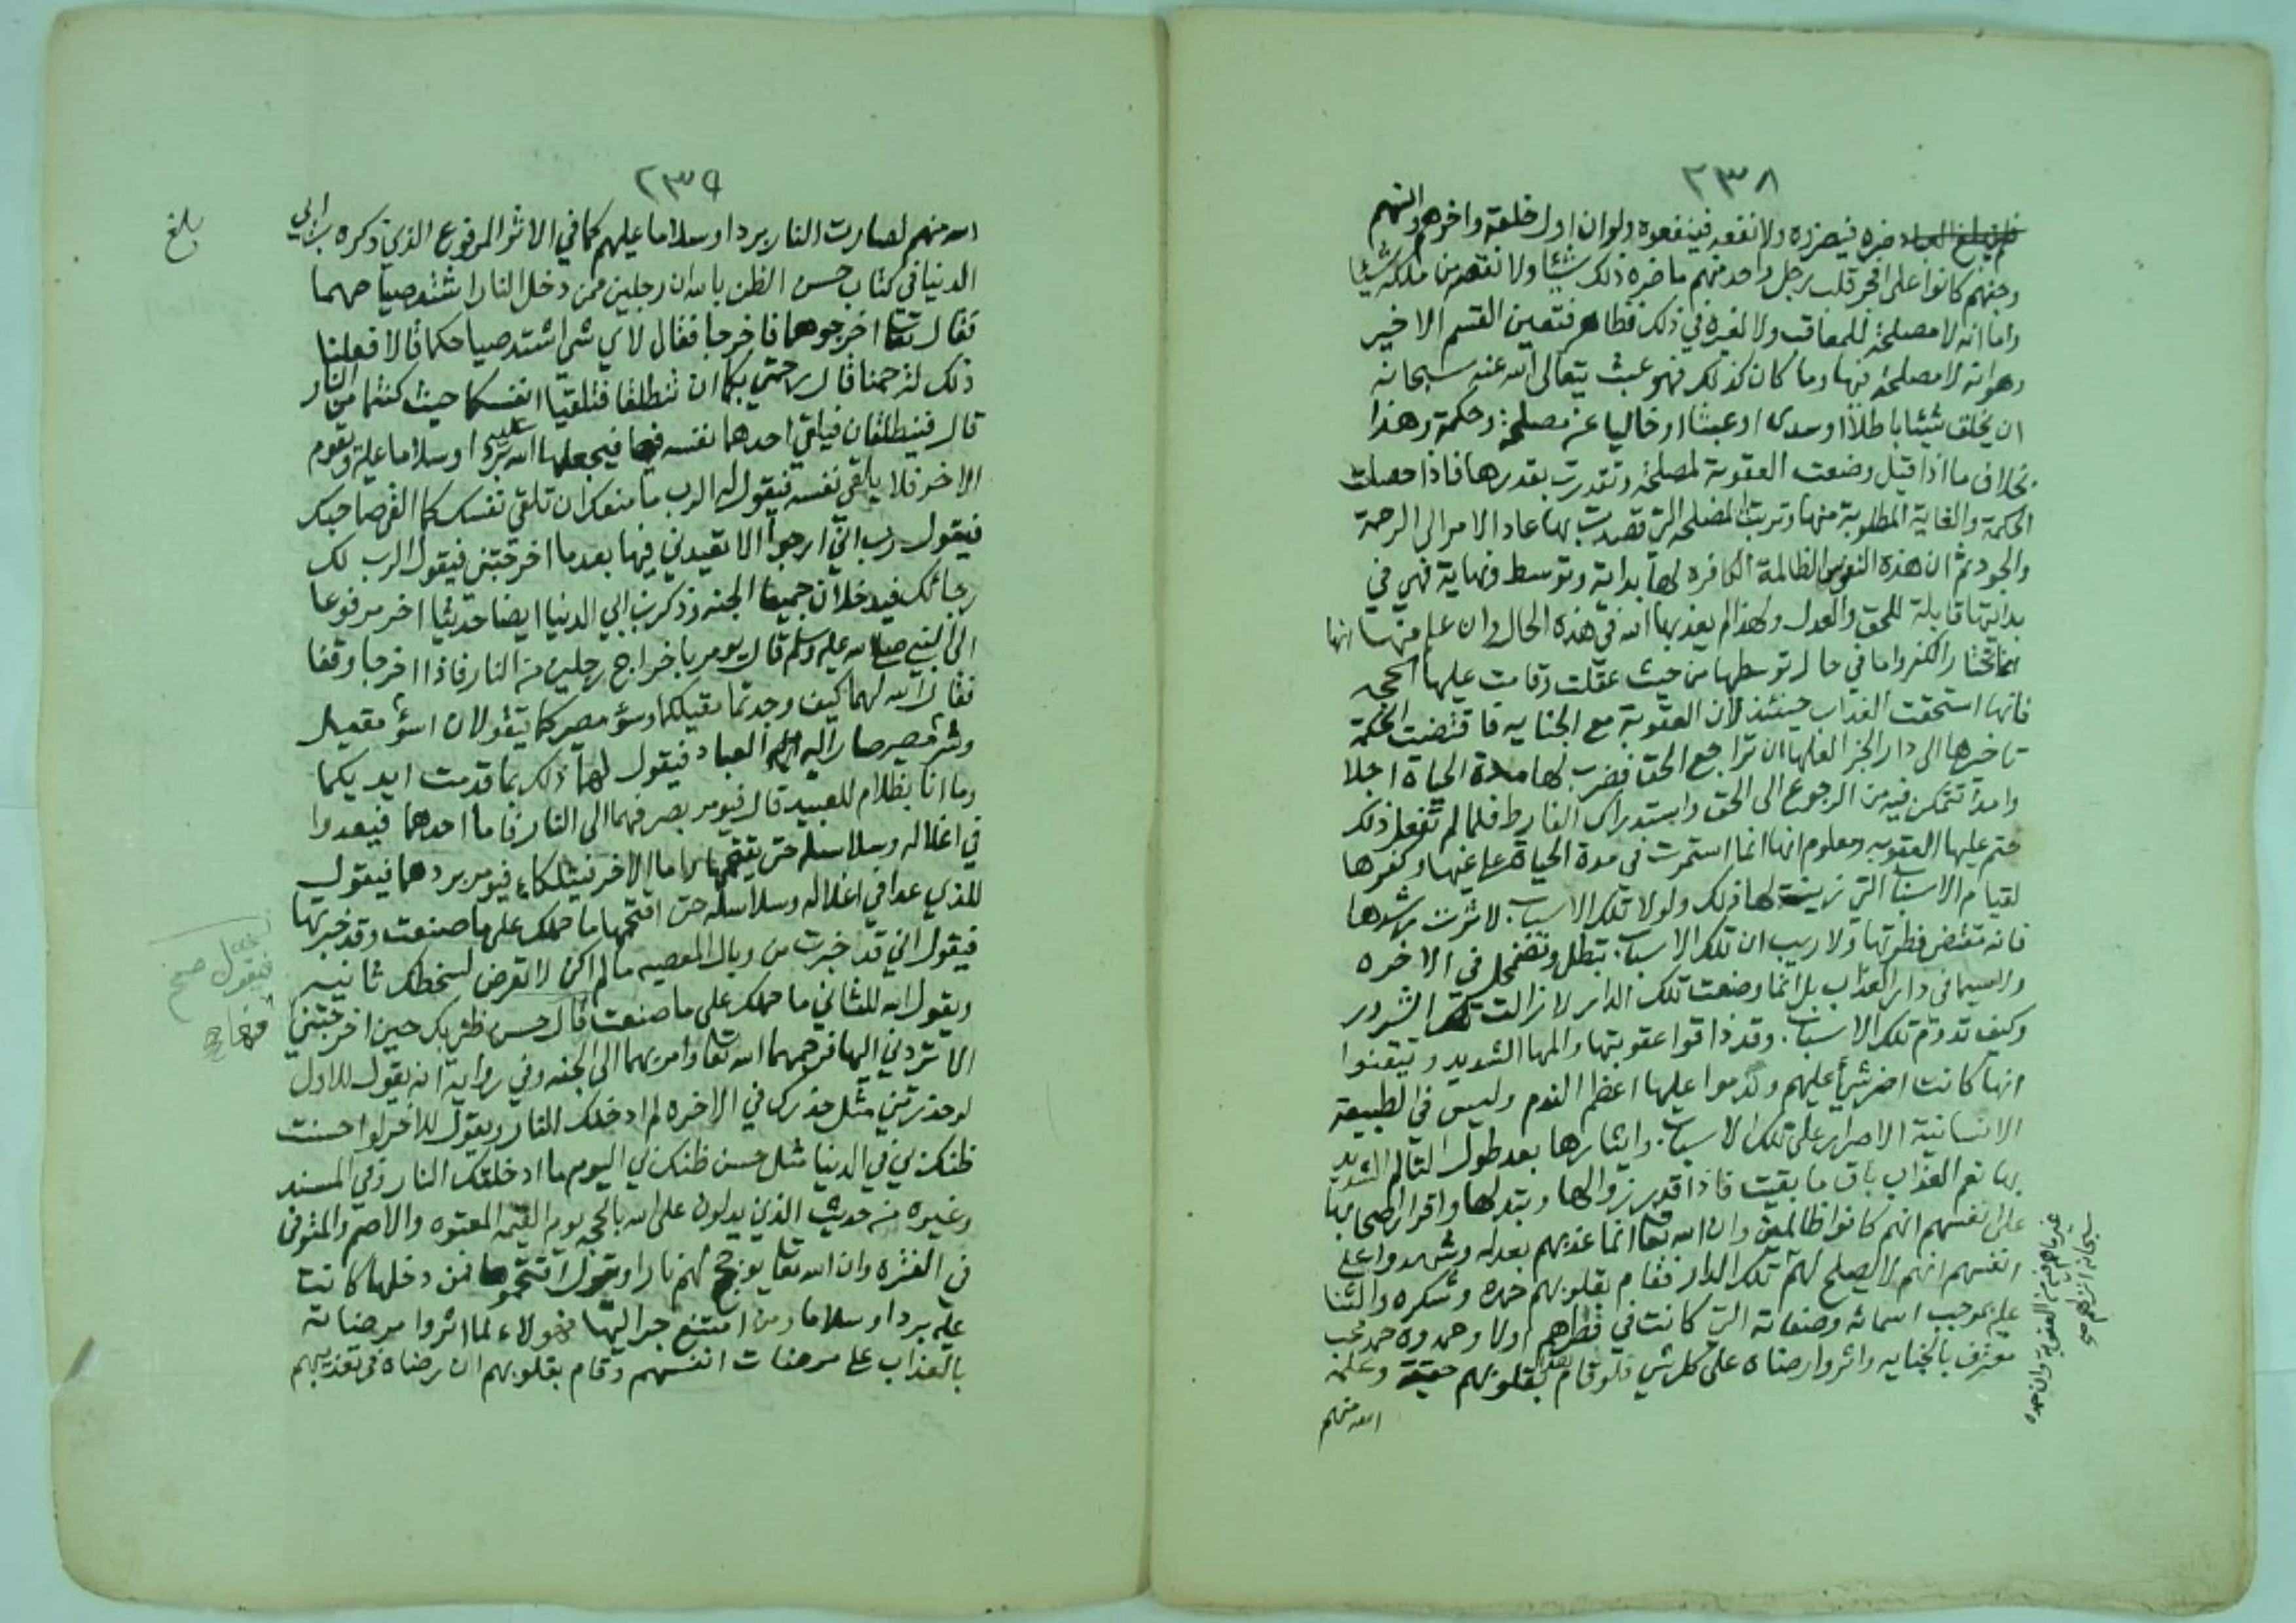 ٢٣٨
ضره فيضروه ولا نفعه فينفعوه ولو ان اول خلقه واخرهم وانسهم
وجنهم كانوا على افجر قلب رجل واحد منهم ما ضره ذلك شيئا ولا نقص من ملكه شيئا
واما انه لا مصلحة للمعاقب ولا لغيره في ذلك فظاهر فتعين القسم الاخير
وهو انه لا مصلحة فيها وما كان كذلك فهو عبث يتعالى الله عنه سبحانه
ان يخلق شيئا باطلا او سدى او عبثا او خاليا عن مصلحة وحكمة وهذا
بخلاف ما اذا قيل وضعت العقوبة لمصلحة وتقدرت بقدرها فاذا حصلت
الحكمة والغاية المطلوبة منها وترتبت المصلحه التي قصدت بها عاد الامر الى الرحمة
والجود ثم ان هذه النفوس الظالمة الكافره لها بداية وتوسط ونهاية فهي في
بدايتها قابلة للحق والعدل ولهذا لم يعذبها الله في هذه الحال وان علم منها انها
انما تختار الكفر واما في حال توسطها من حيث عقلت وقامت عليها الحجه
فانها استحقت العذاب حينئذ لان العقوبة مع الجنايه فاقتضت الحكمة
تاخيرها الى دار الجزا لعلها ان تراجع الحق فضرب لها مدة الحياة اجلا
وامدا تتمكن فيه من الرجوع الى الحق واستدراك الفارط فلما لم تفعل ذلك
حتم عليها العقوبه ومعلوم انها انما استمرت في مدة الحياة على غيها وكفرها
لقيام الاسباب التي زينت لها ذلك ولولا تلك الاسباب لاثرت رشدها
فانه مقتضى فطرتها ولا ريب ان تلك الاسباب تبطل وتضمحل في الاخره
ولاسيما في دار العذاب بل انما وضعت تلك الدار لازالت تلك الشرور
وكيف تدوم تلك الاسباب وقد ذاقوا عقوبتها والمها الشديد وتيقنوا
انها كانت اضر شي عليهم وندموا عليها اعظم الندم وليس في الطبيعة
الانسانية الاصرار على تلك الاسباب وايثارها بعد طول التالم الشديد
بها نعم العذاب باق ما بقيت فاذا قدر زوالها وتبدلها واقرار اصحابها
على انفسهم انهم كانوا ظالمين وان الله تعالى انما عذبهم بعدله وشهدوا على
انفسهم انهم لا يصلح لهم تلك الدار فقام بقلوبهم حمده وشكره والثنا
عليه بموجب اسمائه وصفاته التي كانت في فطرهم اولا وحمدوه حمد محب
معترف بالجنايه واثروا رضاه على كل شي فلو قام بقلوبهم حقيقة وعلمه
الله منهم
٢٣٩
الله منهم لصارت النار بردا وسلاما عليهم كما في الاثر المرفوع الذي ذكره بن ابي
الدنيا في كتاب حسن الظن بالله ان رجلين ممن دخل النار اشتد صياحهما
فقال تعالى اخرجوهما فاخرجا فقال لاي شي اشتد صياحكما قالا فعلنا
ذلك لترحمنا قال رحمتي بكما ان تنطلقا فتلقيا انفسكما حيث كنتما من النار
قال فينطلقان فيلقي احدهما نفسه فيها فيجعلها الله عليه بردا وسلاما عليه ويقوم
الاخر فلا يلقي نفسه فيقول له الرب ما منعك ان تلقي نفسك كما القى صاحبك
فيقول رب اني ارجو الا تعيدني فيها بعد ما اخرجتني فيقول الرب لك
رجائك فيدخلان جميعا الجنه وذكر بن ابي الدنيا ايضا حديثا اخر مرفوعا
الى النبي صلى الله عليه وسلم قال يومر باخراج رجلين من النار فاذا اخرجا وقفا
فقال الله لهما كيف وجدتما مقيلكما وسؤ مصيركما يقولان اسؤ مقيل
وشر مصير صار اليه العباد فيقول لهما ذلك بما قدمت ايديكما
وما انا بظلام للعبيد قال فيومر بصرفهما الى النار فاما احدهما فيعدوا
في اغلاله وسلاسله حتى يقتحمها واما الاخر فيتلكا فيومر بردهما فيقول
للذي عدا في اغلاله وسلاسله حتى اقتحمها ما حملك على ما صنعت وقد خبرتها
فيقول اني قد خبرت من وبال المعصيه ما لم اكن لاتعرض لسخطك ثانيه
ويقول الله للثاني ما حملك على ما صنعت قال حسن ظني بك حين اخرجتني
الا تردني اليها فرحمهما الله تعالى وامر بهما الى الجنه وفي رواية انه يقول للاول
لو حذرتني مثل حذرك في الاخره لم ادخلك النار ويقول للاخر لو احسنت
ظنك بي في الدنيا مثل حسن ظنك بي اليوم ما ادخلتك النار وفي المسند
وغيره من حديث الذين يدلون على الله بالحجه يوم القيمه المعتوه والاصم والمتوفى
في الفتره وان الله تعالى يوجج لهم نارا ويقول اقتحموها فمن دخلها كانت
عليه بردا وسلاما ومن امتنع جر اليها فهولاء لما اثروا مرضاته
بالعذاب على مرضات انفسهم وقام بقلوبهم ان رضاه في تعذيبهم
بلغ
فيقول صح
منها صح